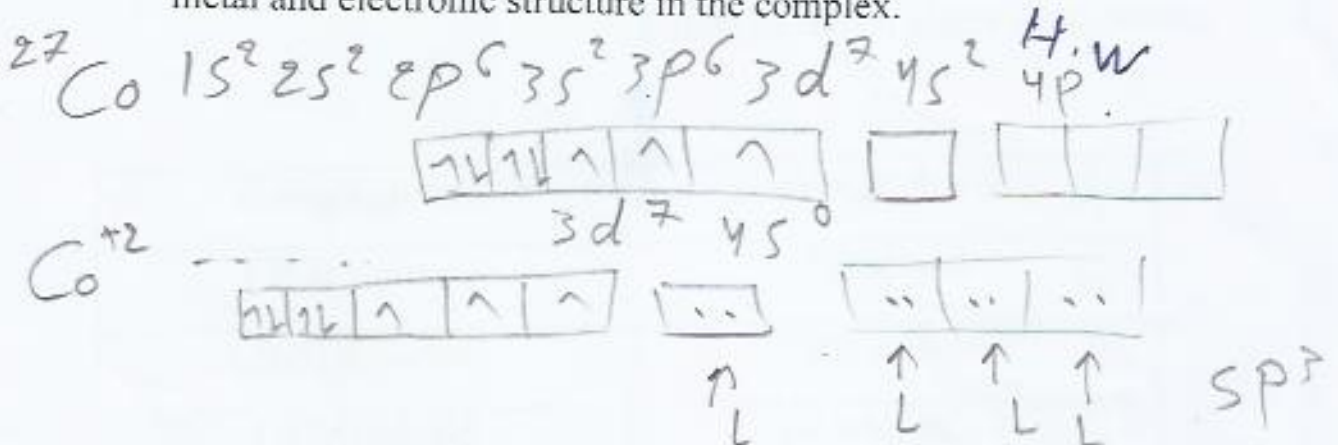 metal and electronic structure in the complex.
H.W
27Co 1S² 2S² 2p⁶ 3s² 3p⁶ 3d⁷ 4s² 4p
3d⁷ 4s⁰
Co⁺² - - - . .
L L L L SP³